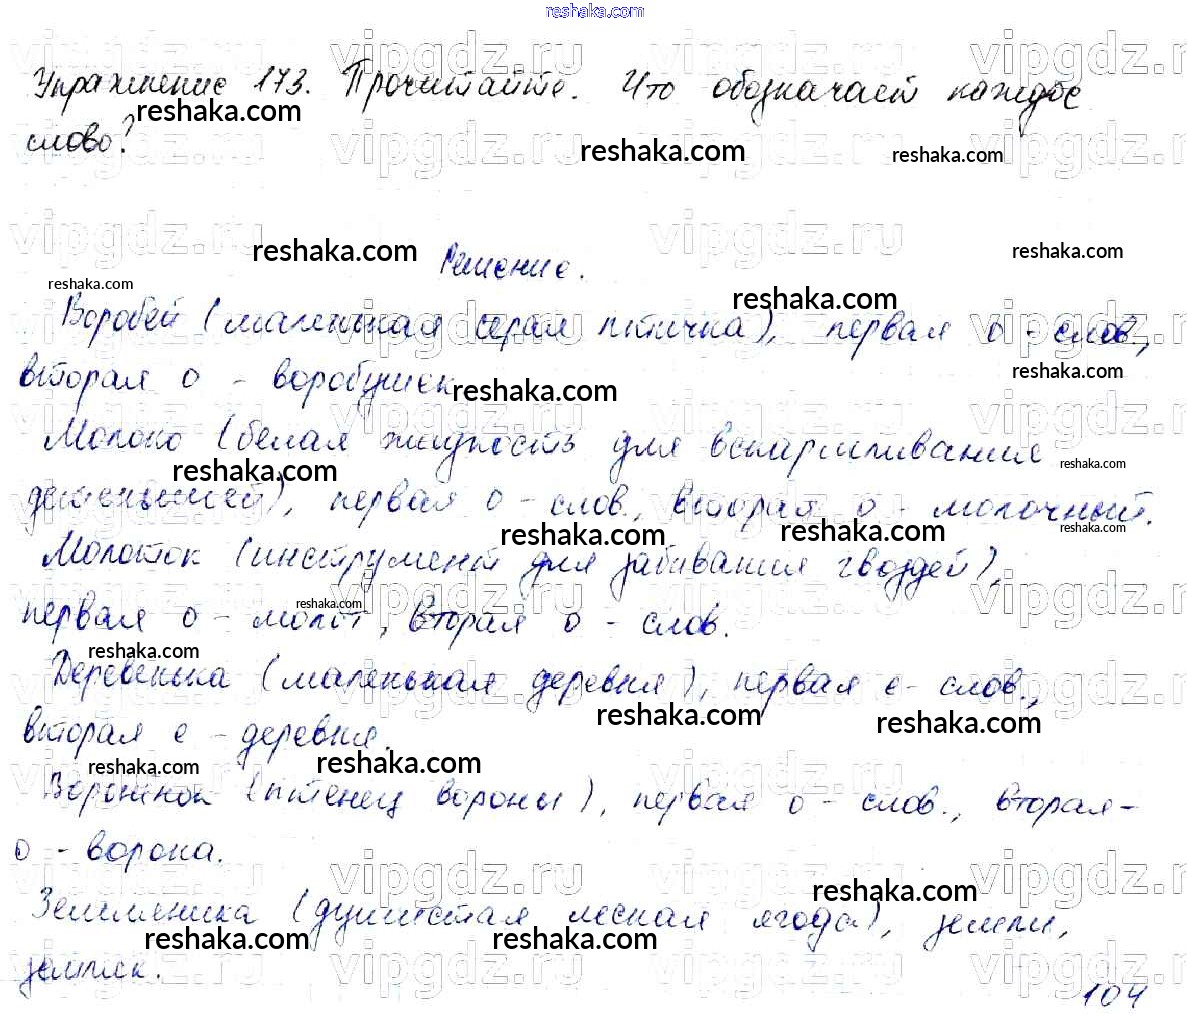 reshaka.com
Упражнение 173. Прочитайте. Что обозначает каждое
слово?
Решение.
Воробей (маленькая серая птичка), первая о - слов.,
вторая о - воробушек
Молоко (белая жидкость для вскармливания
детёнышей), первая о - слов., вторая о - молочный.
Молоток (инструмент для забивания гвоздей),
первая о - молот, вторая о - слов.
Деревенька (маленькая деревня), первая е - слов.,
вторая е - деревня.
Воронёнок (птенец вороны), первая о - слов., вторая -
о - ворона.
Земляника (душистая лесная ягода), земли,
землик.
104